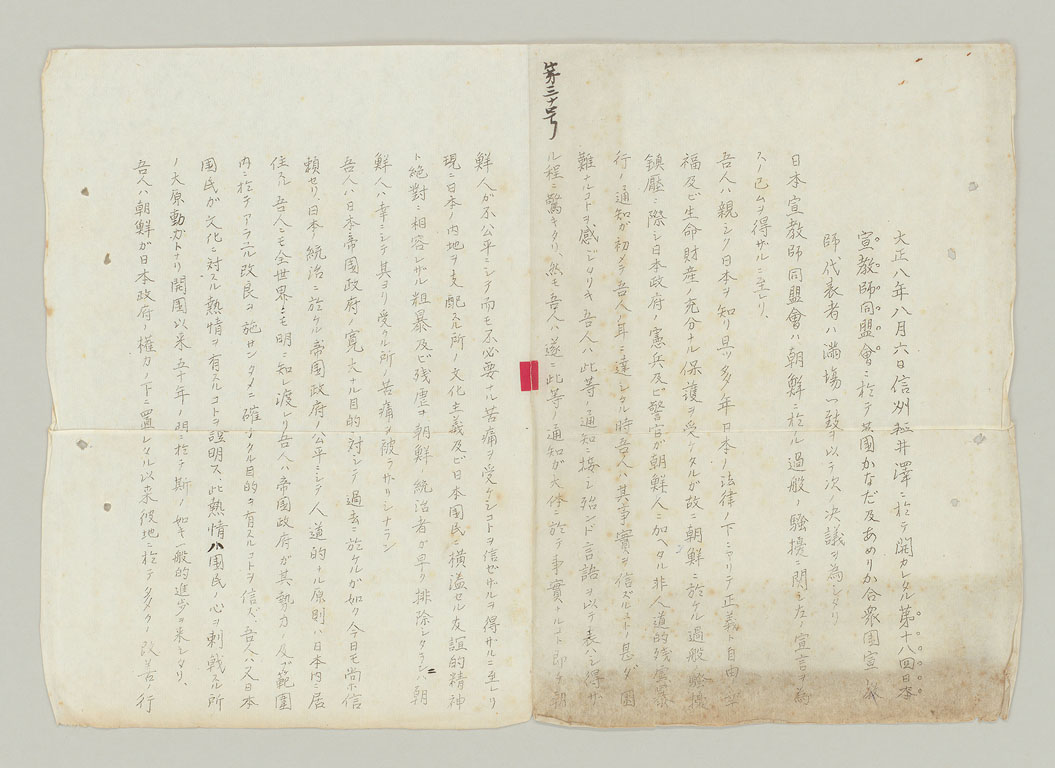 大正八年八月六日信州軽井澤ニ於テ開カレタル第十八回日本
宣教師同盟會ニ於テ英國かなだ及あめりか合衆國宣教
師代表者ハ滿場一致ヲ以テ次ノ决議ヲ為シタリ
日本宣教師同盟會ハ朝鮮ニ於ル過般ノ騷擾ニ関シ左ノ宣言ヲ為
スノ已ムヲ得ザルニ至レリ、
吾人ハ親シク日本ヲ知リ且ツ多年日本ノ法律ノ下ニアリテ正義ト自由ト幸
福及ビ生命財産ノ充分ナル保護ヲ受ケタルガ故ニ朝鮮ニ於ケル過般ノ騷擾
鎮壓ニ際シ日本政府ノ憲兵及ビ警官ガ朝鮮人ニ加ヘタル非人道的残虐暴
行ノ通知ガ初メテ吾人ノ耳ニ達シタル時吾人ハ其事實ヲ信ズルコトノ甚ダ困
難ナルコトヲ感ジタリキ吾人ハ此等ノ通知ニ接シ殆ンド言語ヲ以テ表ハシ得サ
ル程ニ驚キタリ、然モ吾人ハ遂ニ此等ノ通知ガ大体ニ於テ事實ナルコト即チ朝
第三十号
鮮人ガ不公平ニシテ而モ不必要ナル苦痛ヲ受ケシコトヲ信ゼザルヲ得ザルニ至レリ
現ニ日本ノ内地ヲ支配スル所ノ文化主義及ビ日本國民ニ横溢セル友誼的精神
ト絶對ニ相容レザル粗暴及ビ残虐ヲ朝鮮ノ統治者ガ早ク排除シタランニハ朝
鮮人ハ幸ニシテ其ヨリ受クル所ノ苦痛ヲ被ラザリシナラン
吾人ハ日本帝國政府ノ寛大ナル目的ニ対シテ過去ニ於ケルガ如ク今日モ尚ホ信
頼セリ、日本統治ニ於ケル帝國政府ノ公平ニシテ人道的ナル原則ハ日本内ニ居
住スル吾人ニモ全世界ニモ明ニ知レ渡レリ吾人ハ帝國政府ガ其勢力ノ及ブ範圍
内ニ於テアラユル改良ヲ施サンタメニ確乎タル目的ヲ有スルコトヲ信ズ、吾人ハ又日本
國民ガ文化ニ対スル熱情ヲ有スルコトヲ證明ス、此熱情ハ國民ノ心ヲ刺戟スル所
ノ大原動力トナリ開國以来五十年ノ間ニ於テ斯ノ如キ一般的進歩ヲ来シタリ、
吾人ハ朝鮮ガ日本政府ノ權力ノ下ニ置レタル以来彼地ニ於テ多クノ改善ノ行